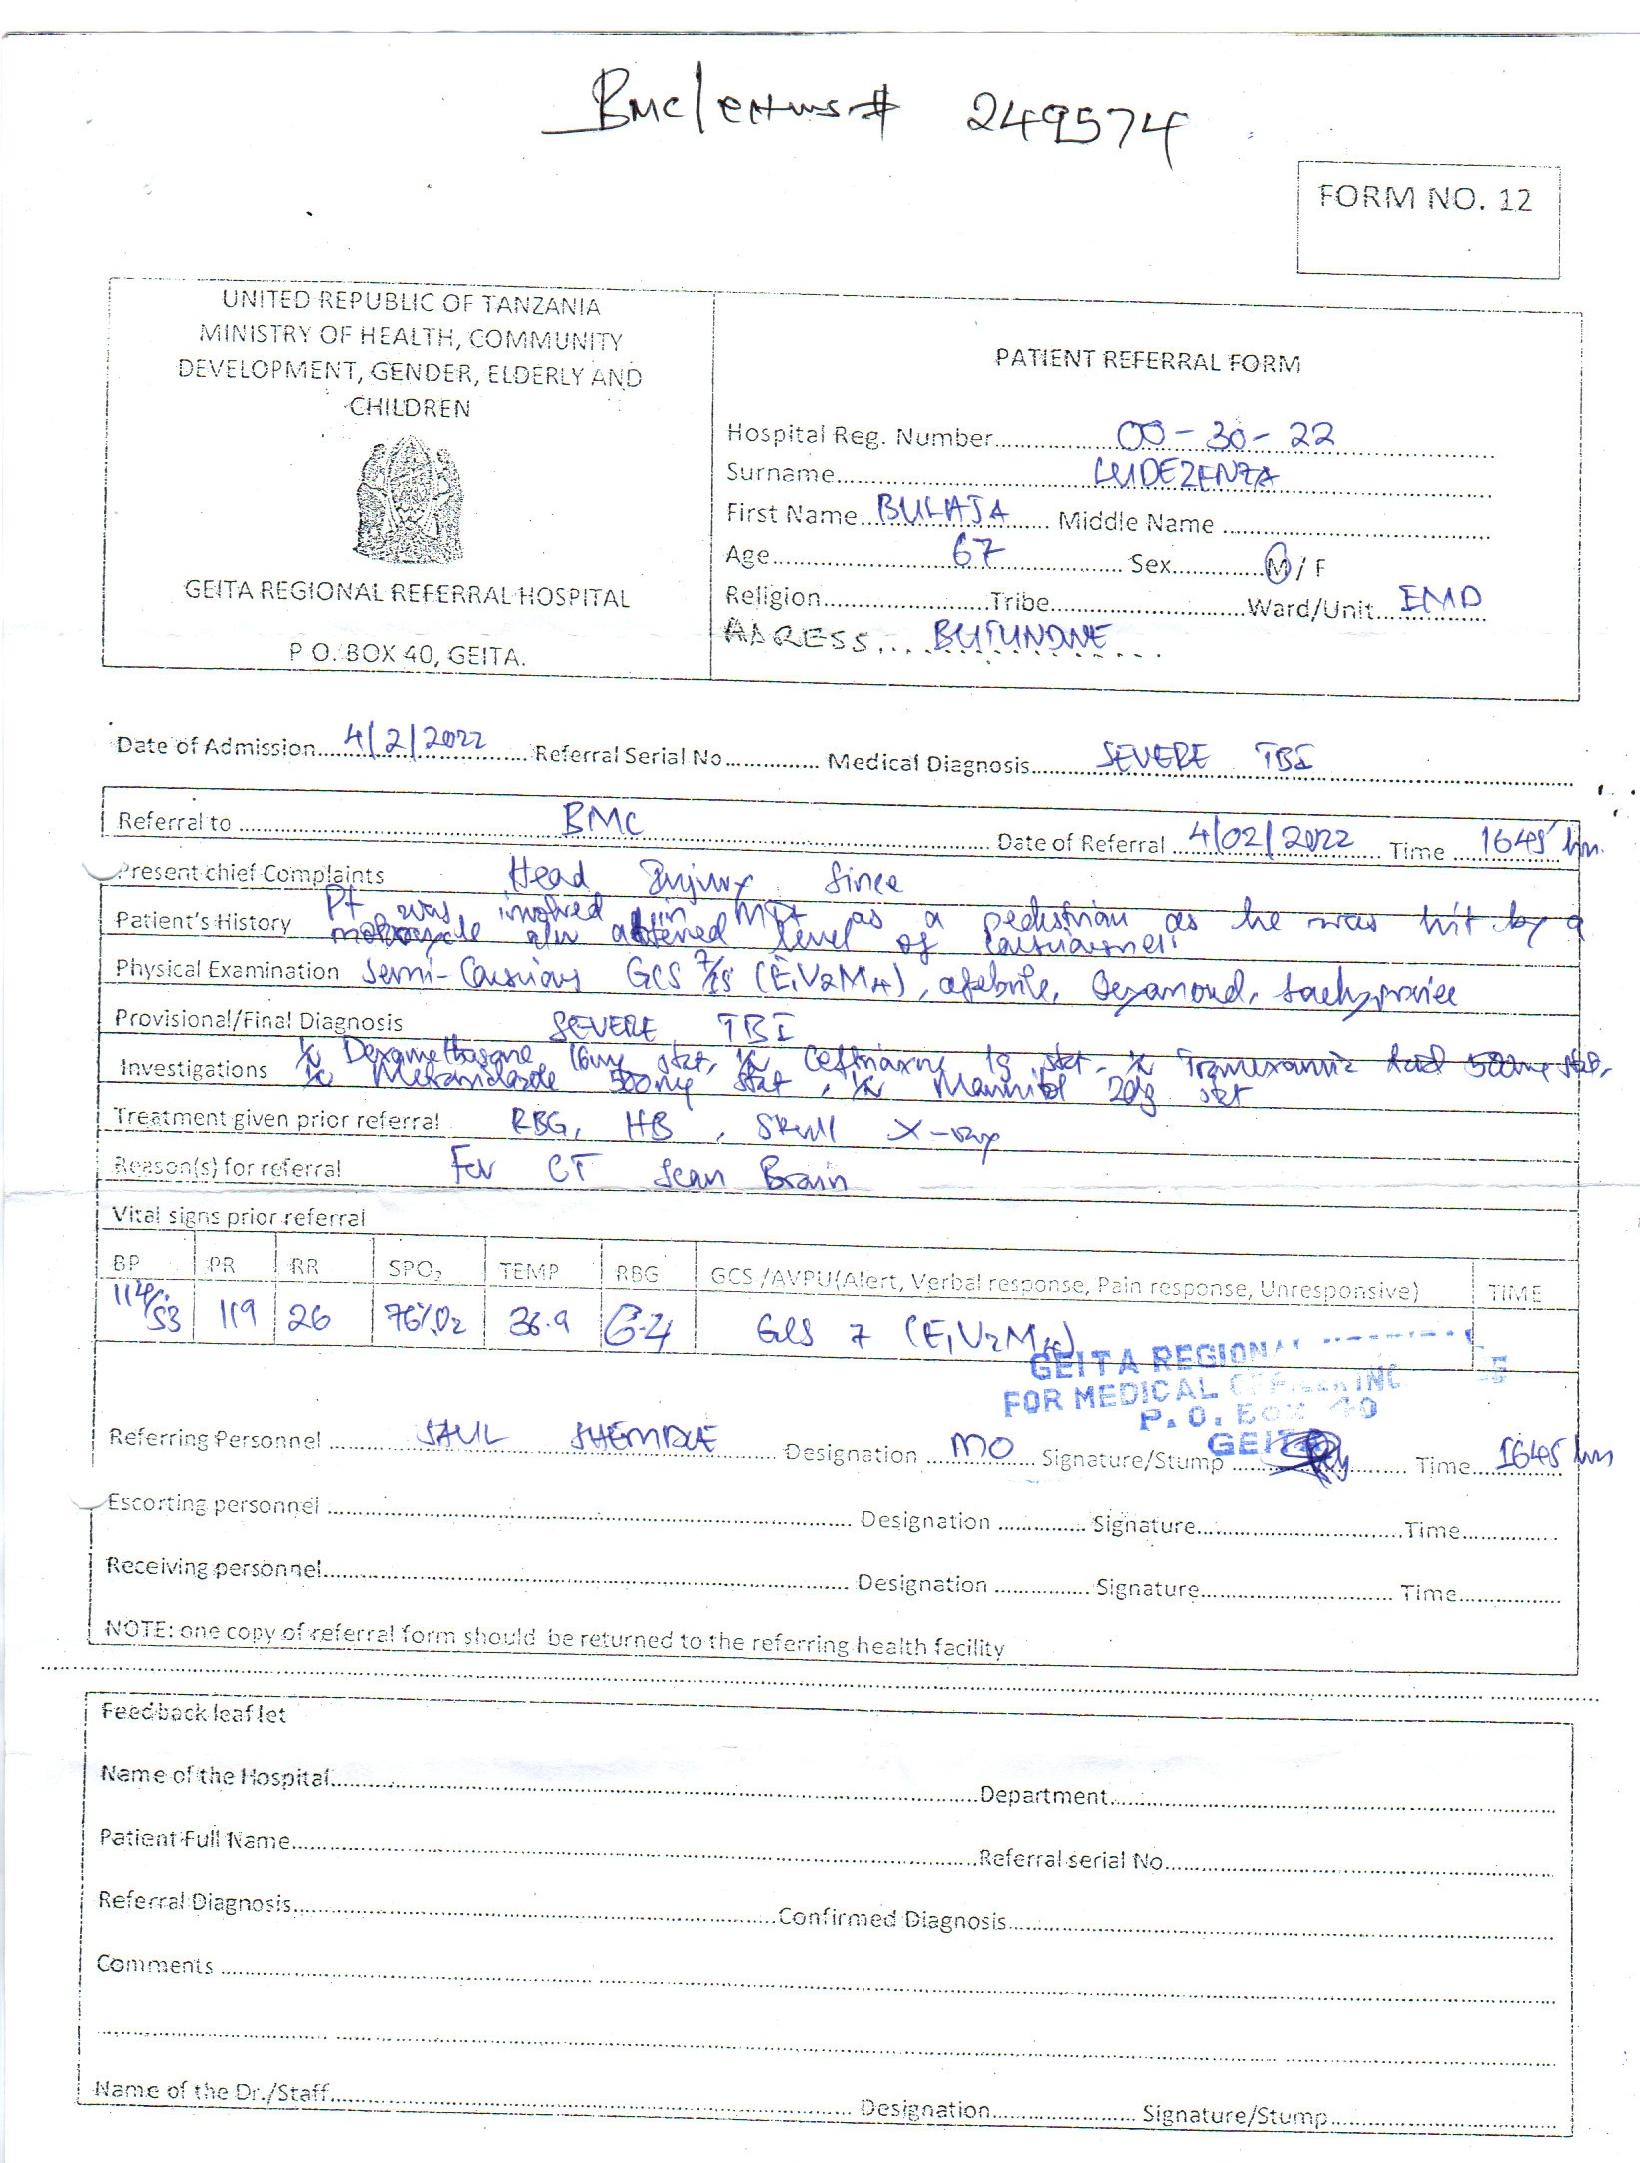 BMC/ # 249574
FORM NO. 12
UNITED REPUBLIC OF TANZANIA
MINISTRY OF HEALTH, COMMUNITY
DEVELOPMENT, GENDER, ELDERLY AND
CHILDREN
GEITA REGIONAL REFERRAL HOSPITAL
P O. BOX 40, GEITA.
PATIENT REFERRAL FORM
Hospital Reg. Number 00-30-22
Surname LUDEZENZA
First Name BULASA Middle Name
Age 67 Sex M/F
Religion Tribe Ward/Unit EMD
ADRESS
Date of Admission 4/2/2022 Referral Serial No Medical Diagnosis SEVERE TBI
Referral to BMC Date of Referral 4/02/2022 Time 1645 hrs.
Present chief Complaints Head Injury Since
Patient's History Pt was involved in MTA as a pedestrian as he was hit by a
motorcycle altered level of
Physical Examination Semi- GCS 7/15 (E1V2M4), afebrile,
Provisional/Final Diagnosis SEVERE TBI
Investigations Dexamethasone 16mg stat, Ceftriaxone 1g stat, Tranexamic Acid 500mg stat,
Metronidazole 500mg stat, Mannitol 20g stat
Treatment given prior referral RBG, HB, Skull X-ray
Reason(s) for referral For CT Scan Brain
Vital signs prior referral
BP PR RR SPO2 TEMP RBG GCS/AVPU(Alert, Verbal response, Pain response, Unresponsive) TIME
114/53 119 26 76%O2 36.9 6.4 GCS 7 (E1V2M4)
GEITA REGIONAL
FOR MEDICAL
P.O. BOX 40
GEITA
Referring Personnel SAUL Designation MO Signature/Stump Time 1645 hrs
Escorting personnel Designation Signature Time
Receiving personnel Designation Signature Time
NOTE: one copy of referral form should be returned to the referring health facility
Feedback leaflet
Name of the Hospital Department
Patient Full Name Referral serial No
Referral Diagnosis Confirmed Diagnosis
Comments
Name of the Dr./Staff Designation Signature/Stump